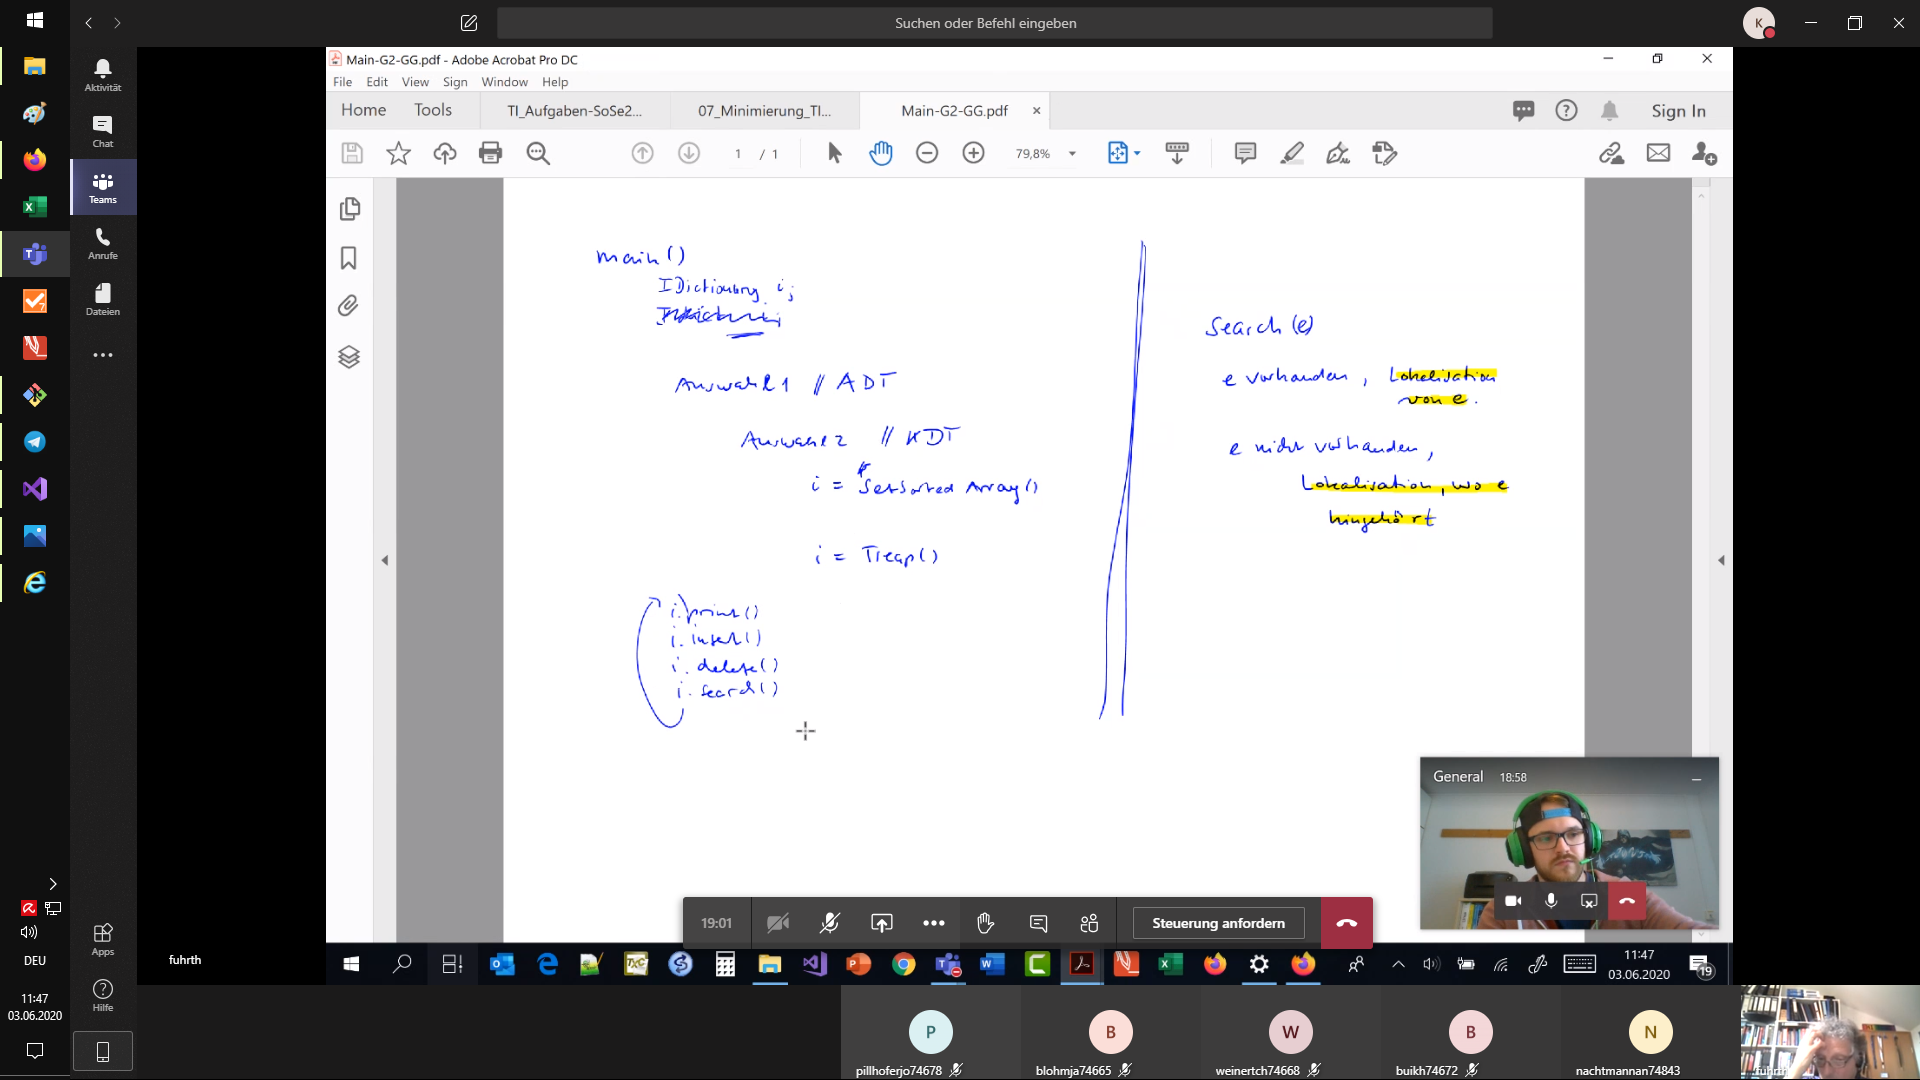 Suchen oder Befehl eingeben
K
Aktivität
Chat
Teams
Anrufe
Dateien
Apps
Hilfe
DEU
11:47
03.06.2020
Main-G2-GG.pdf - Adobe Acrobat Pro DC
File Edit View Sign Window Help
Home Tools TI_Aufgaben-SoSe2... 07_Minimierung_TI... Main-G2-GG.pdf × Sign In
1 / 1 79,8%
main()
IDictionary i;
Auswahl 1 // ADT
Auswahl 2 // KDT
i = SetSortedArray()
i = Treap()
i.print()
i.insert()
i.delete()
i.search()
Search(e)
e vorhanden, Lokalisation
von e.
e nicht vorhanden,
Lokalisation, wo e
hingehört
General 18:58
19:01 Steuerung anfordern
11:47
03.06.2020
19
fuhrth
P
pillhoferjo74678
B
blohmja74665
W
weinertch74668
B
buikh74672
N
nachtmannan74843
fuhrth